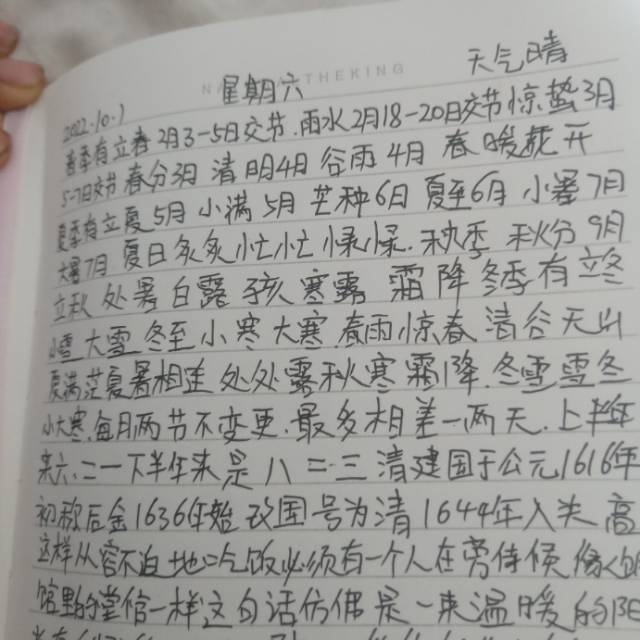 天气晴
THEKING
2022.10.1 星期六
春季有立春2月3-5日交节.雨水2月18-20日交节惊蛰3月
5-7日交节 春分3月 清明4月 谷雨4月 春暖花开
夏季有立夏5月 小满5月 芒种6日 夏至6月 小暑7月
大暑7月 夏日炙炙忙忙 秋季 秋分9月
立秋 处暑 白露 寒露 霜降 冬季有立冬
小雪 大雪 冬至 小寒大寒.春雨惊春 清谷天山
夏满芒夏暑相连 处处露秋寒霜降.冬雪雪冬
小大寒.每月两节不变更.最多相差一两天.上半年
来六.二一下半年来是八二三 清建国于公元1616年
初称后金1636年始改国号为清1644年入关 高
这样从容不迫地吃饭必须有一个人在旁侍候像
馆里的堂倌一样这句话仿佛是一束温暖的阳